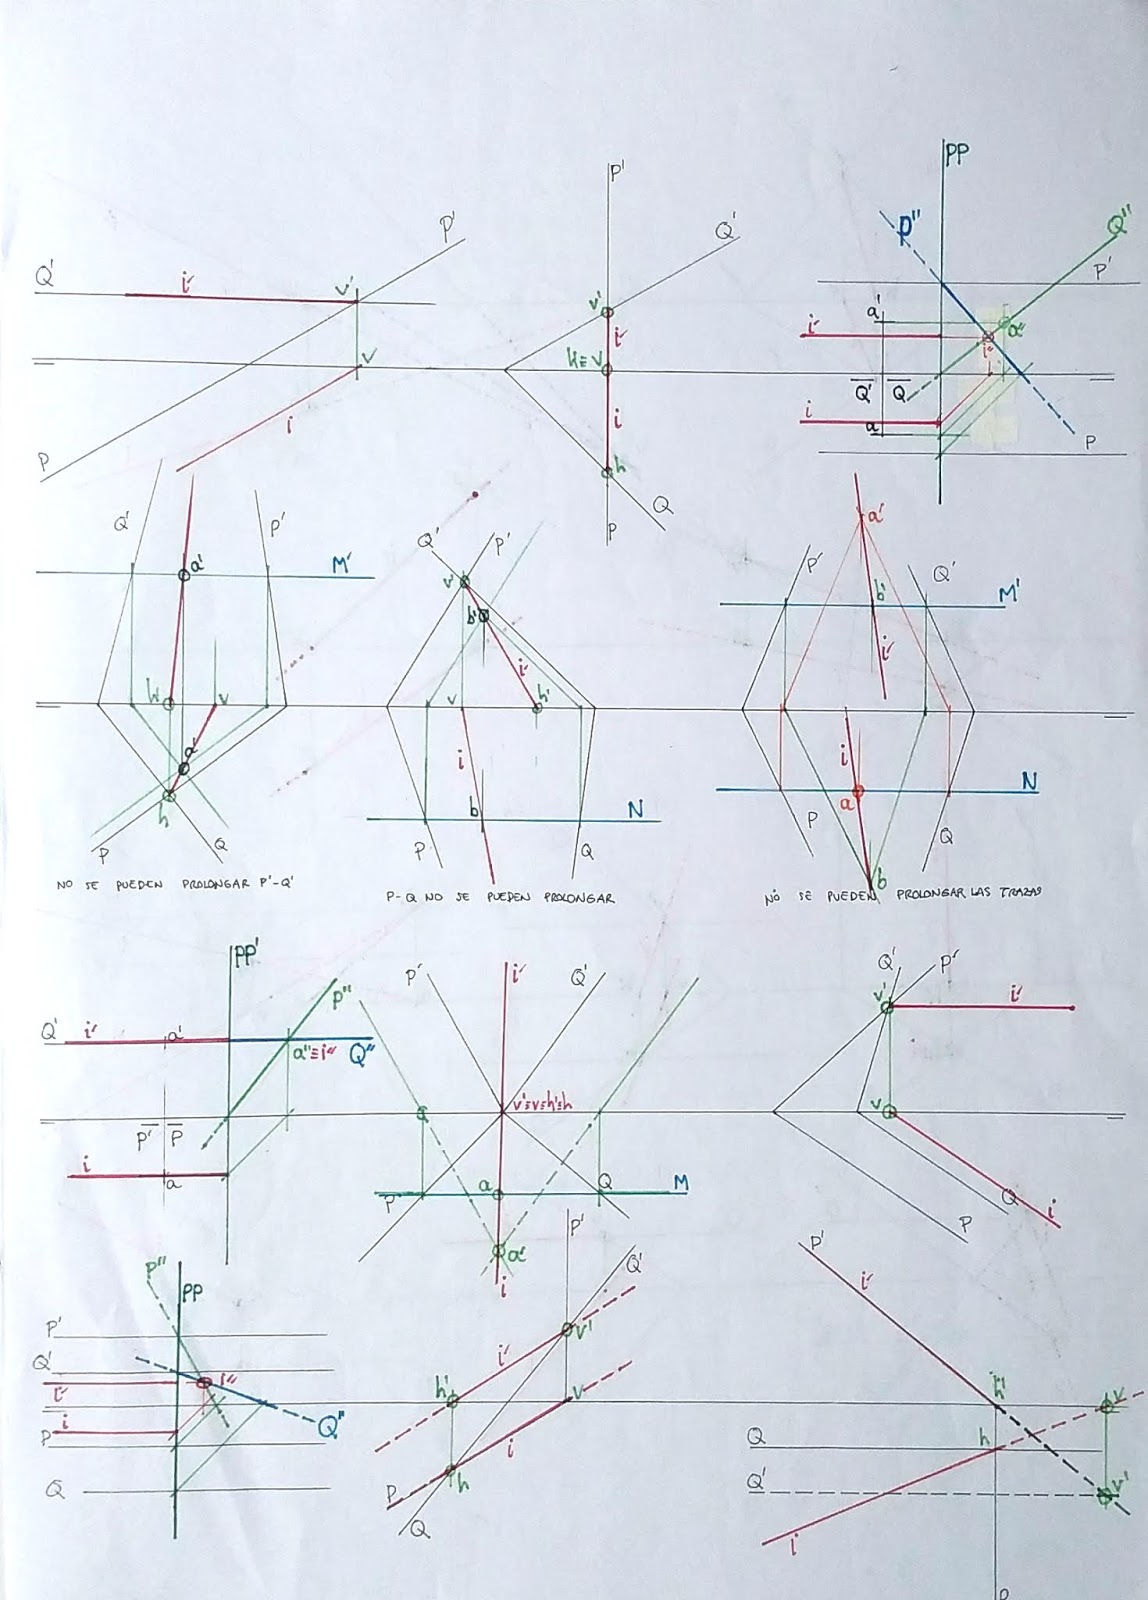 Q' i' v' P'
v
i
P
P'
Q'
v' i'
h'≡v
i
h
Q
P
PP
P'' Q''
P'
a'
i' a''
i''
Q' Q
i
a
P
Q' P'
a' M'
h' v
a
h
P Q
NO SE PUEDEN PROLONGAR P'-Q'
Q' P'
v'
b'
i'
v h'
i
b N
P Q
P-Q NO SE PUEDEN PROLONGAR
a'
P' Q'
b' M'
i'
i
a N
P Q
b
NO SE PUEDEN PROLONGAR LAS TRAZAS
PP'
P''
Q' i' a'
a''≡i'' Q''
P' P
i
a
P' i' Q'
v'≡v≡h'≡h
P a Q M
a'
i
Q' P'
v' i'
v
Q
P i
P'' PP
P'
Q'
i' i''
i
P Q''
Q
P'
Q'
i' v'
h' v
i
P h
Q
P'
i'
h' v
Q h
Q' v'
i
P